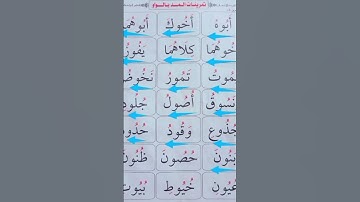 تمرينات المد بالواو
أَبُوهُ أَخُوكَ أَبُوهُمَا
خُوهُمَا كِلَاهُمَا يَفُوزُ
تَمُورُ نَخُوضُ
نَسُوقُ أُصُولُ جُلُودُ
جُذُوعِ وَقُودُ حُدُودُ
حُصُونَ ظُنُونَ
عُيُونِ خُيُوطِ بُيُوتِ